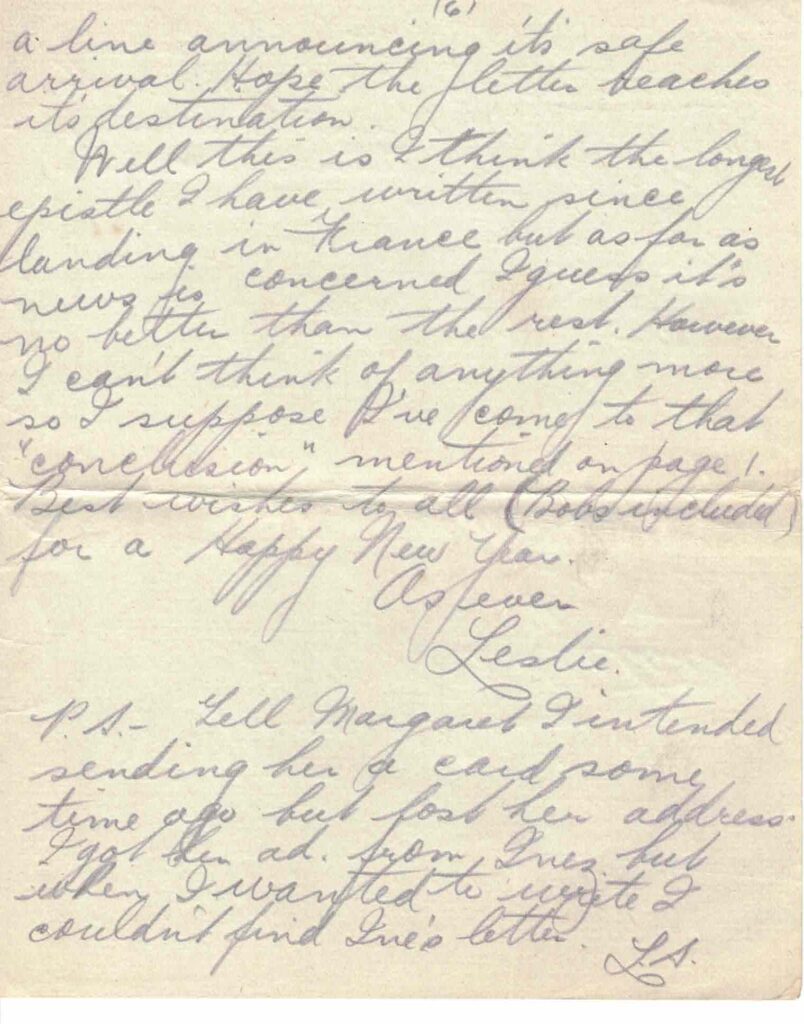 (6)
a line announcing it's safe
arrival. Hope the letter reaches
it's destination.
Well this is I think the longest
epistle I have written since
landing in France but as far as
news is concerned I guess it's
no better than the rest. However
I can't think of anything more
so I suppose I've come to that
"conclusion" mentioned on page 1.
Best wishes to all (Bobs included)
for a Happy New Year.
As ever
Leslie.
P.S.- Tell Margaret I intended
sending her a card some
time ago but lost her address.
I got her ad. from Inez but
when I wanted to write I
couldn't find Ine's letter. L.S.